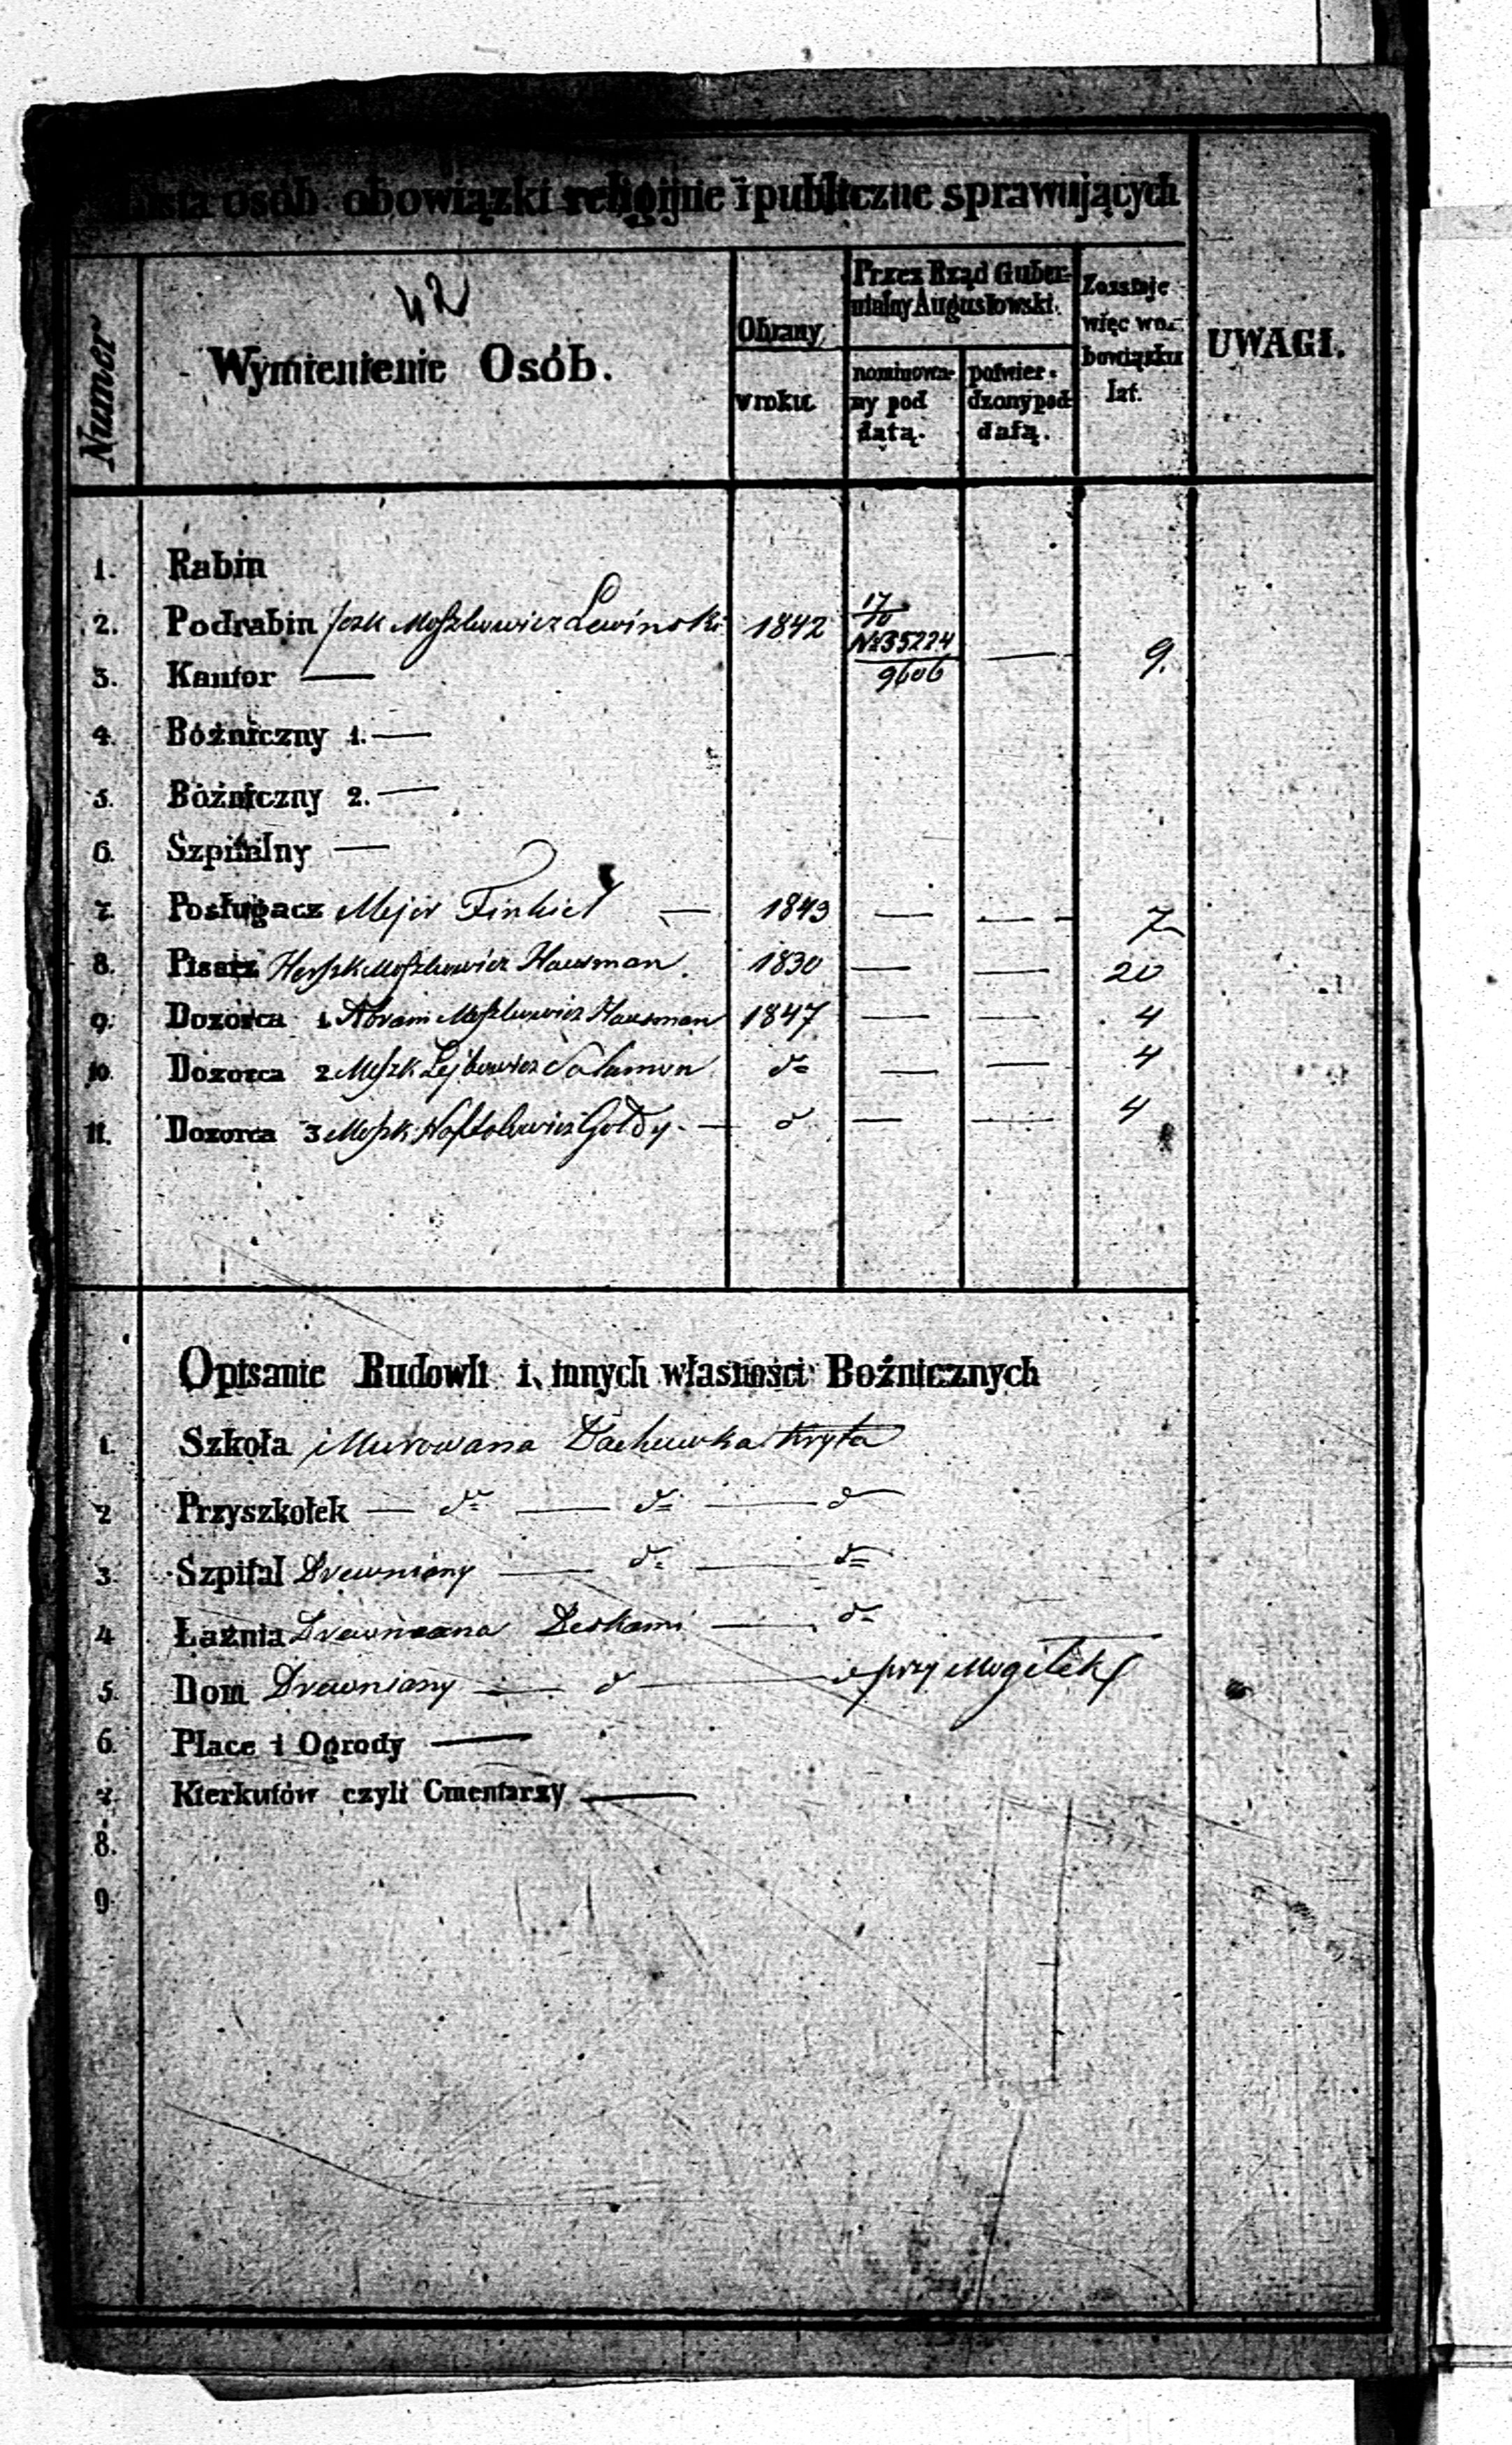 Lista osób obowiązki religijne i publiczne sprawujących
Numer
42
Wymienienie Osób.
Obrany w roku
Przez Rząd Gubernialny Augustowski.
nominowany pod datą.
potwierdzony pod datą.
Zostaje więc w obowiązku lat.
UWAGI.
1. Rabin
2. Podrabin Joszk Moszkowicz Lewinski 1842 17/10 № 35224/9606 — 9.
3. Kantor —
4. Bóżniczny 1. —
5. Bóżniczny 2. —
6. Szpitalny —
7. Posługacz Mejer Finkiel — 1843 — — 7
8. Pisarz Herszk Moszkowicz Hausman. 1830 — — 20
9. Dozorca 1. Abram Moszkowicz Hausman 1847 — — 4
10. Dozorca 2 Moszk Lejbowicz Salamon do — — 4
11. Dozorca 3 Moszk Naftolowicz Goldy. — do — — 4
Opisanie Budowli i innych własności Bożnicznych
1. Szkoła Murowana Dachuwka kryta
2 Przyszkołek — do — do — do
3. Szpital Drewniany — do — do
4 Łaźnia Drewniana Deskami — do
5. Dom Drewniany — do — przy Mogiłek
6. Place i Ogrody —
7. Kierkutów czyli Cmentarzy —
8.
9.